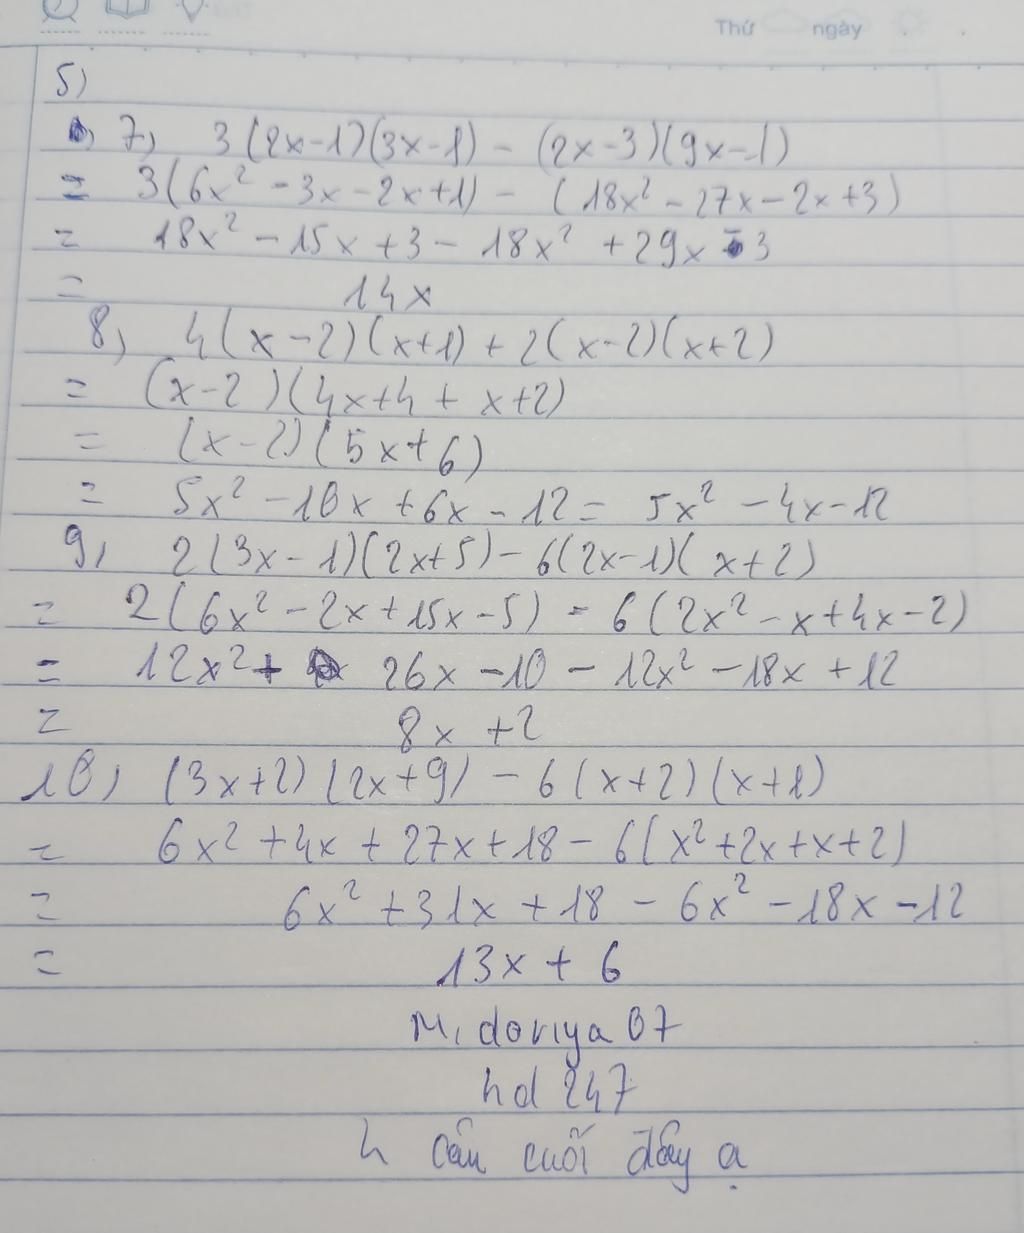 Thứ ngày
5)
7, 3(2x-1)(3x-1) - (2x-3)(9x-1)
= 3(6x² - 3x - 2x + 1) - (18x² - 27x - 2x + 3)
= 18x² - 15x + 3 - 18x² + 29x - 3
= 14x
8, 4(x-2)(x+1) + 2(x-2)(x+2)
= (x-2)(4x+4 + x+2)
= (x-2)(5x+6)
= 5x² - 10x + 6x - 12 = 5x² - 4x - 12
9, 2(3x-1)(2x+5) - 6(2x-1)(x+2)
= 2(6x² - 2x + 15x - 5) - 6(2x² - x + 4x - 2)
= 12x² + 26x - 10 - 12x² - 18x + 12
= 8x + 2
10, (3x+2)(2x+9) - 6(x+2)(x+1)
= 6x² + 4x + 27x + 18 - 6(x² + 2x + x + 2)
= 6x² + 31x + 18 - 6x² - 18x - 12
= 13x + 6
Midoriya 07
hd 247
4 câu cuối đây ạ